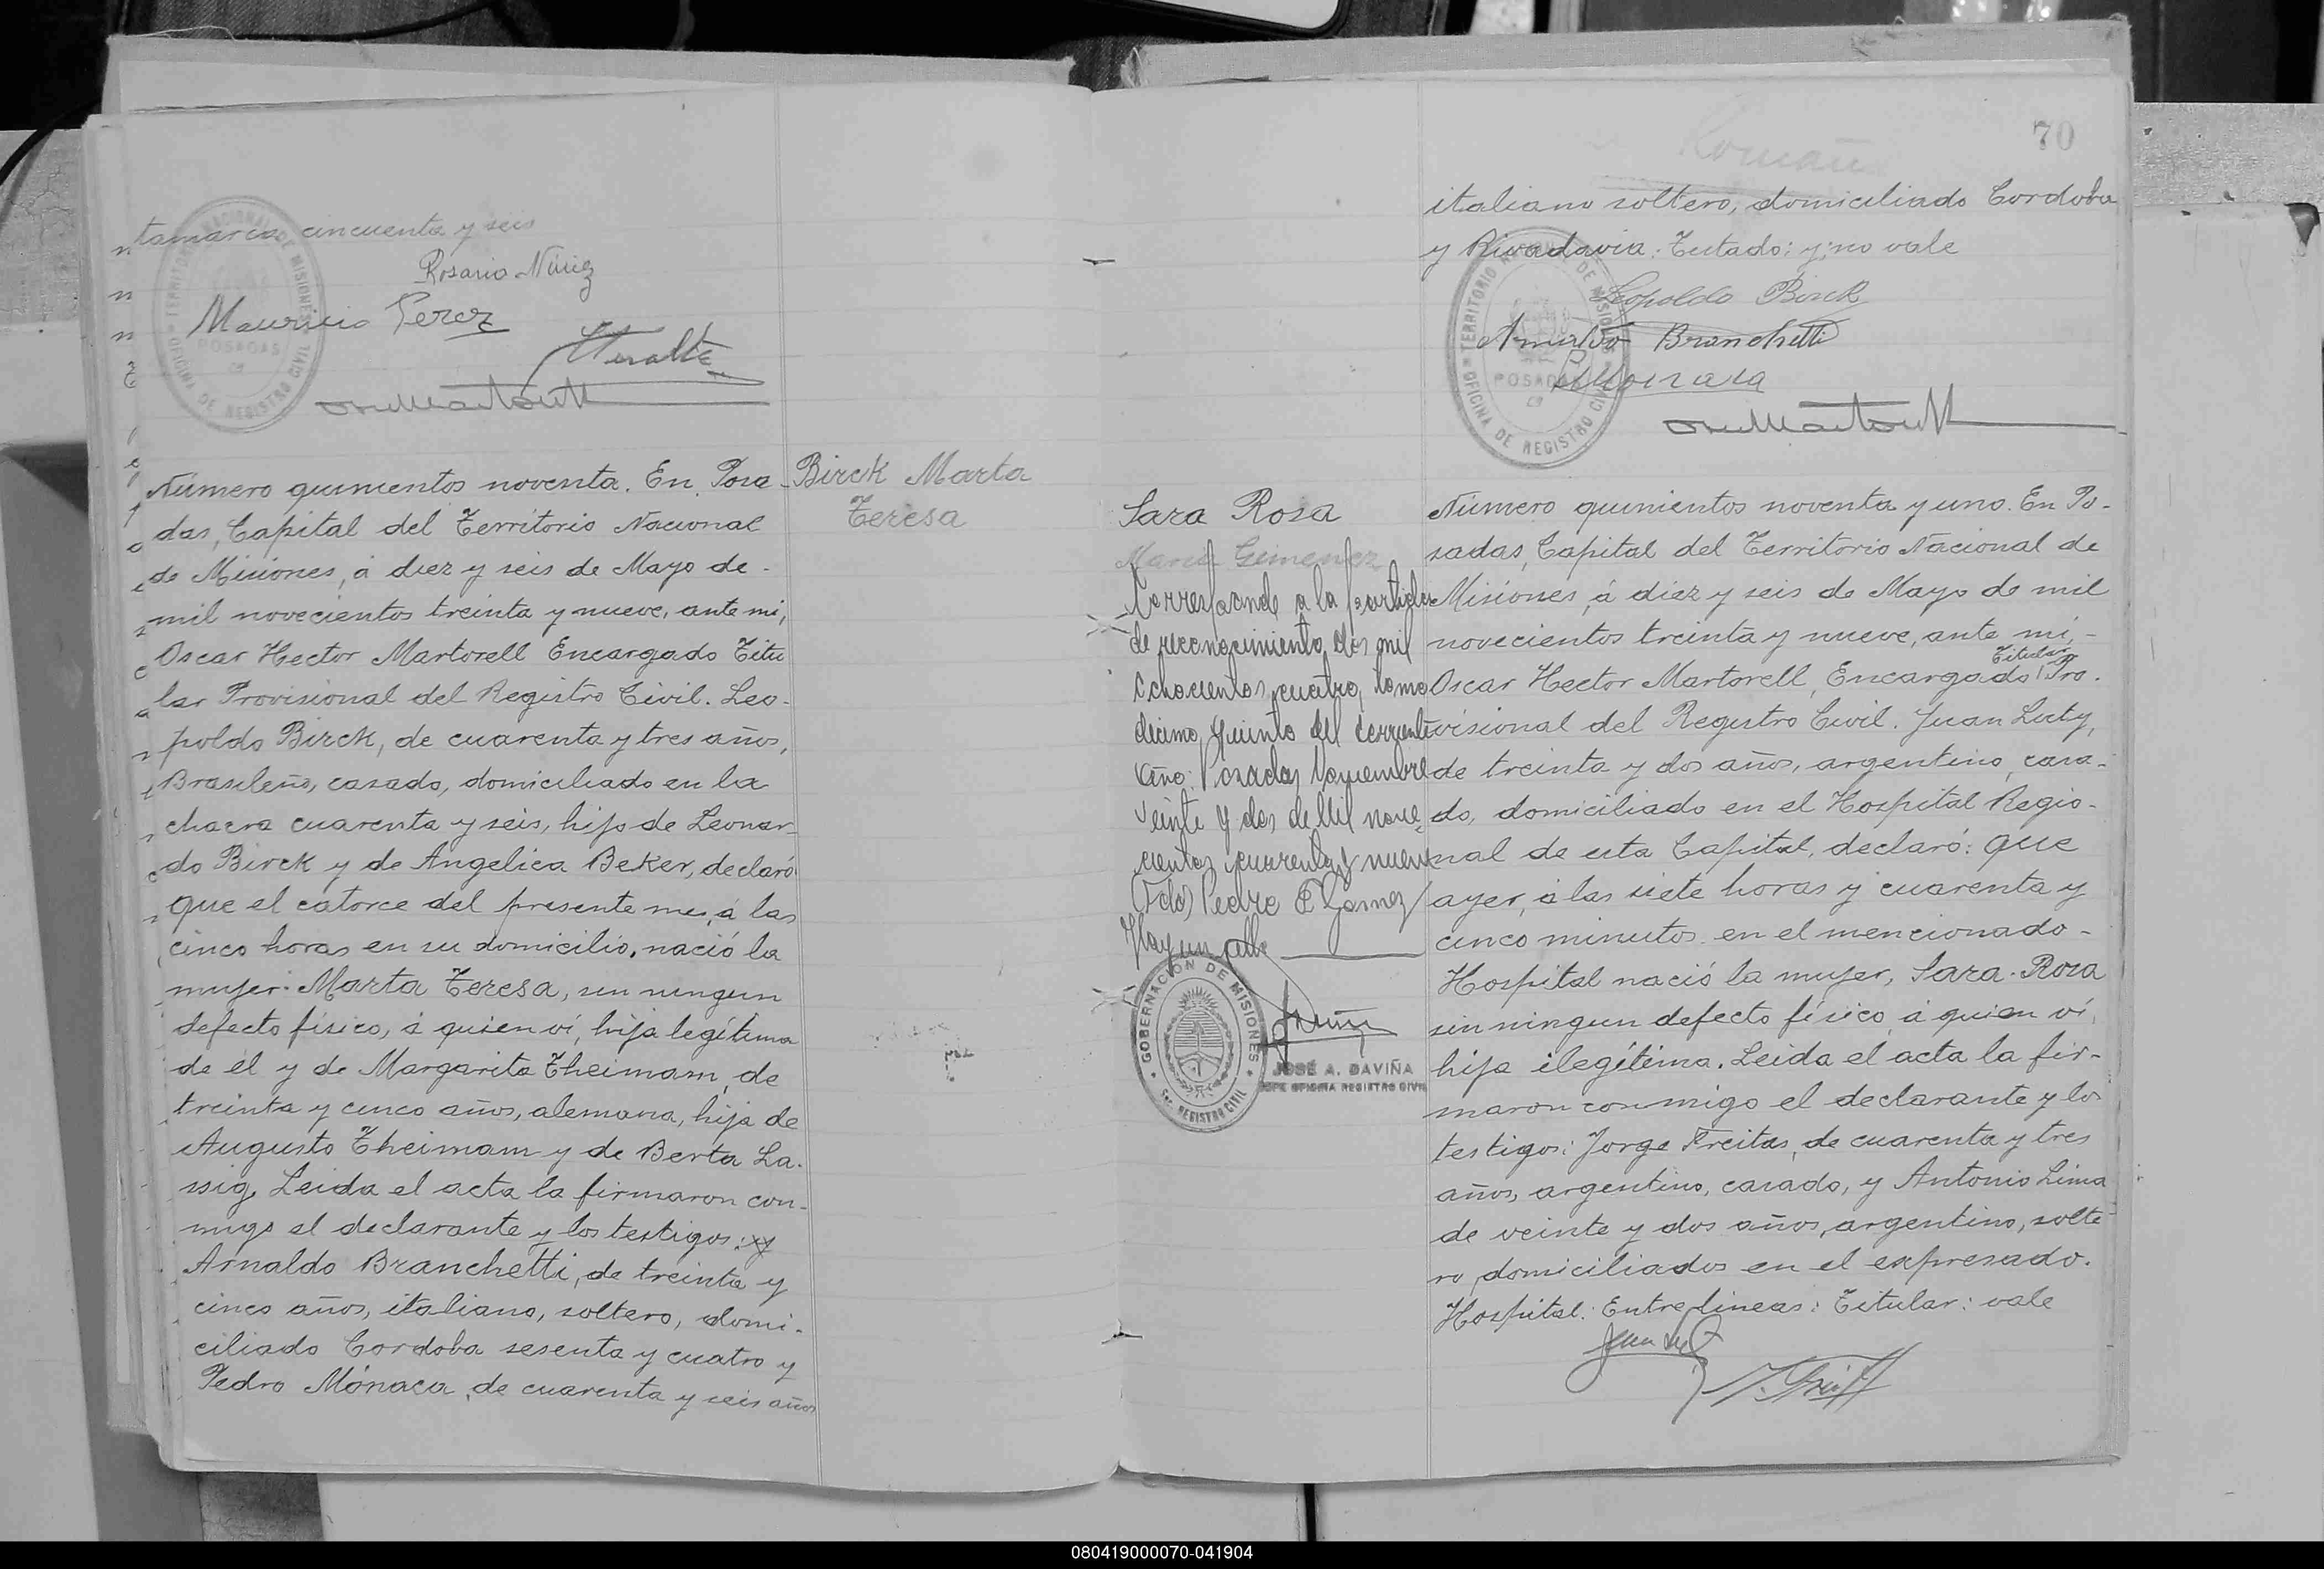 tamarca cincuenta y seis
Rosario Núñez
Mauricio Perez
TERRITORIO NACIONAL DE MISIONES
POSADAS
OFICINA DE REGISTRO CIVIL
Birck Marta
Teresa
Número quinientos noventa. En Posa-
das, Capital del Territorio Nacional
de Misiones, á diez y seis de Mayo de-
mil novecientos treinta y nueve, ante mi,
Oscar Hector Martorell Encargado Titu
lar Provisional del Registro Civil. Leo-
poldo Birck, de cuarenta y tres años,
Brasileño, casado, domiciliado en la
chacra cuarenta y seis, hijo de Leonar-
do Birck y de Angelica Beker, declaró
que el catorce del presente mes, á las
cinco horas en su domicilio, nació la
mujer: Marta Teresa, sin ningun
defecto físico, á quien ví, hija legítima
de él y de Margarita Theimam, de
treinta y cinco años, alemana, hija de
Augusto Theimam y de Berta La-
ssig, Leida el acta la firmaron con-
migo el declarante y los testigos: y
Arnaldo Branchetti, de treinta y
cinco años, italiano, soltero, domi-
ciliado Cordoba sesenta y cuatro y
Pedro Mónaca, de cuarenta y seis años
70
italiano soltero, domiciliado Cordoba
y Rivadavia: Testado: y: no vale
Leopoldo Birck
Arnaldo Branchetti
P Monaca
TERRITORIO NACIONAL DE MISIONES
POSADAS
OFICINA DE REGISTRO CIVIL
Sara Rosa
Maria Gimenez
Corresponde a la partida
de reconocimiento dos mil
ochocientos cuatro, tomo
décimo quinto del corriente
año. Posadas Noviembre
veinte y dos de Mil nove-
cientos cuarenta y nueve
(Fdo) Pedro E Gomez
Hay un sello
GOBERNACION DE MISIONES
REGISTRO CIVIL
JOSÉ A. DAVIÑA
JEFE OFICINA REGISTRO CIVIL
Número quinientos noventa y uno. En Po-
sadas, Capital del Territorio Nacional de
Misiones, á diez y seis de Mayo de mil
novecientos treinta y nueve, ante mi,-
Titular
Oscar Hector Martorell, Encargado Pro-
visional del Registro Civil. Juan Lucty,
de treinta y dos años, argentino, casa-
do, domiciliado en el Hospital Regio-
nal de esta Capital, declaró: que
ayer, á las siete horas y cuarenta y
cinco minutos en el mencionado-
Hospital nació la mujer, Sara-Rosa
sin ningun defecto físico á quien ví,
hija ilegítima. Leida el acta la fir-
maron conmigo el declarante y los
testigos: Jorge Freitas, de cuarenta y tres
años, argentino, casado, y Antonio Lima
de veinte y dos años, argentino, solte
ro, domiciliados en el expresado.
Hospital: Entre líneas: Titular: vale
080419000070-041904